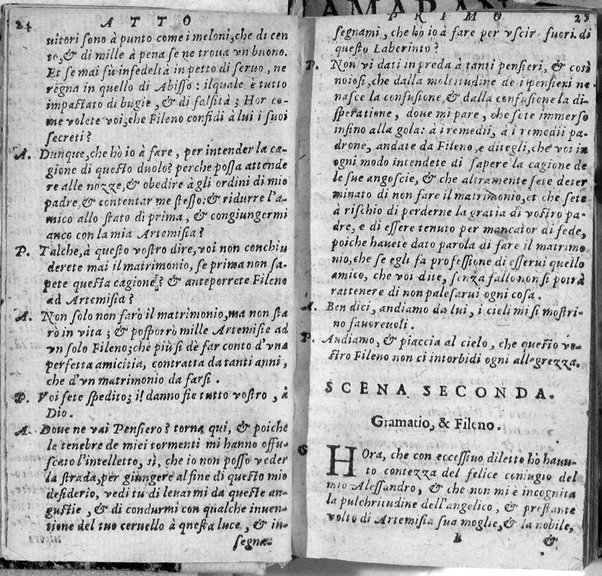 AMARAN
24 ATTO
uitori sono à punto come i meloni, che di cen
to, & di mille à pena se ne troua vn buono.
Et se mai fu infedeltà in petto di seruo, ne
regna in quello di Abisso: ilquale è tutto
impastato di bugie, & di falsità; Hor co-
me volete voi, che Fileno confidi à lui i suoi
secreti?
A. Dunque, che hò io à fare, per intender la ca-
gione di questo duolo? perche possa attende
re alle nozze, & obedire à gli ordini di mio
padre, & contentar me stesso: & ridurre l'a-
mico allo stato di prima, & congiungermi
anco con la mia Artemisia?
P. Talche, à questo vostro dire, voi non conchiu
derete mai il matrimonio, se prima non sa-
pete questa cagione? & anteporrete Fileno
ad Artemisia?
A. Non solo non farò il matrimonio, ma non sta
rò in vita; & posporrò mille Artemisie ad
vn solo Fileno; che più si dè far conto d'vna
perfetta amicitia, contratta da tanti anni,
che d'vn matrimonio da farsi.
P. Voi sete spedito; il danno sie tutto vostro, à
Dio.
A. Doue ne vai Pensiero? torna quì, & poiche
le tenebre de miei tormenti mi hanno offu-
scato l'intelletto, sì, che io non posso veder
la strada, per giungere al fine di questo mio
desiderio, vedi tu di leuarmi da queste an-
gustie, & di condurmi con qualche inuen-
tione del tuo ceruello à questa luce, & in-
segna-
PRIMO 25
segnami, che hò io à fare per vscir fuori di
questo Laberinto?
P. Non vi dati in preda à tanti pensieri, & così
noiosi, che dalla moltitudine de i pensieri ne
nasce la confusione, & dalla confusione la di-
speratione, doue mi pare, che sete immerso
insino alla gola: à i remedij, à i remedij pa-
drone, andate da Fileno, e ditegli, che voi in
ogni modo intendete di sapere la cagione de
le sue angoscie, & che altramente sete deter
minato di non fare il matrimonio, et che sete
à rischio di perderne la gratia di vostro pa-
dre, e di essere tenuto per mancator di fede,
poiche hauete dato parola di fare il matrimo
nio, che se egli fa professione di esserui quello
amico, che voi dite, senza fallo non si potrà
rattenere di non palesarui ogni cosa.
A. Ben dici, andiamo da lui, i cieli mi si mostri-
no fauoreuoli.
P. Andiamo, & piaccia al cielo, che questo vo-
stro Fileno non ci intorbidi ogni allegrezza.
SCENA SECONDA.
Gramatio, & Fileno.
G HOra, che con eccessiuo diletto hò hauu-
to contezza del felice coniugio del
mio Alessandro, & che non mi è incognita
la pulchritudine dell'angelico, & prestante
volto di Artemisia sua moglie, & la nobile,
B &